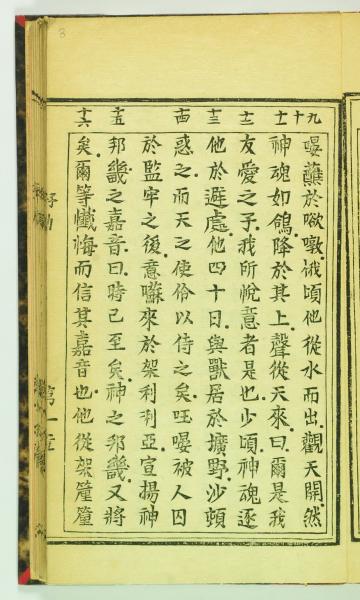 3
九
十
十一
十二
十三
十四
十五
十六
蘸於俄頃他從水而出觀天開然
神魂如鴿降於其上聲從天來曰爾是我
友愛之子我所悅意者是也少頃神魂逐
他於避處他四十日與獸居於壙野沙頓
惑之而天之使伶以侍之矣被人囚
於監牢之後意囌來於架利利亞宣揚神
邦畿之嘉音曰時已至矣神之邦畿又將
矣爾等懺悔而信其嘉音也他從架
第一章